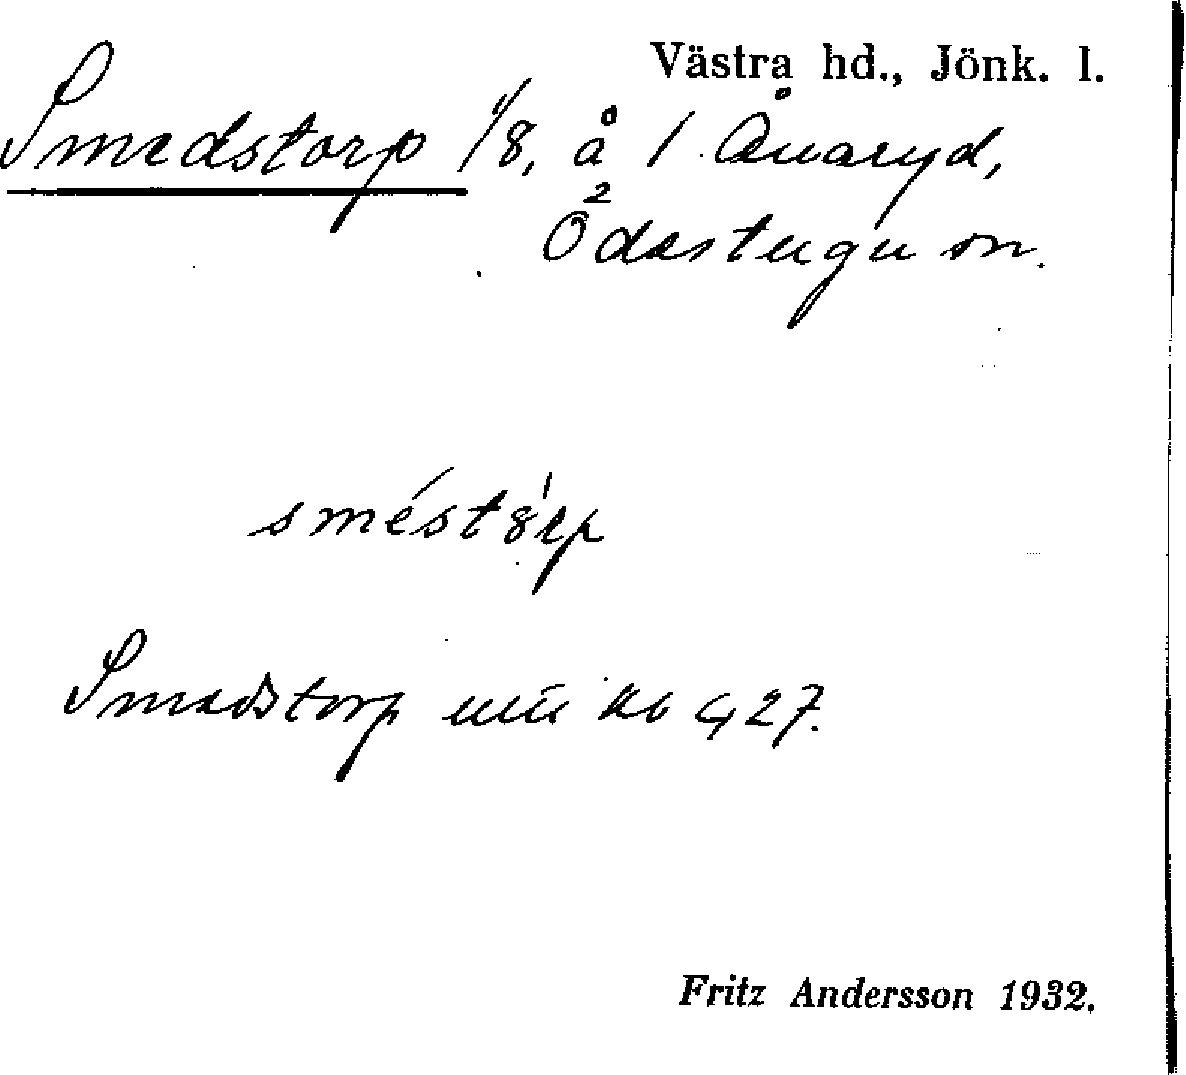 Västra hd., Jönk. l.
Smedstorp 1/8, å 1 Åvaryd,
Ödestugu sn.
sméstórp
Smedstorp 427.
Fritz Andersson 1932.